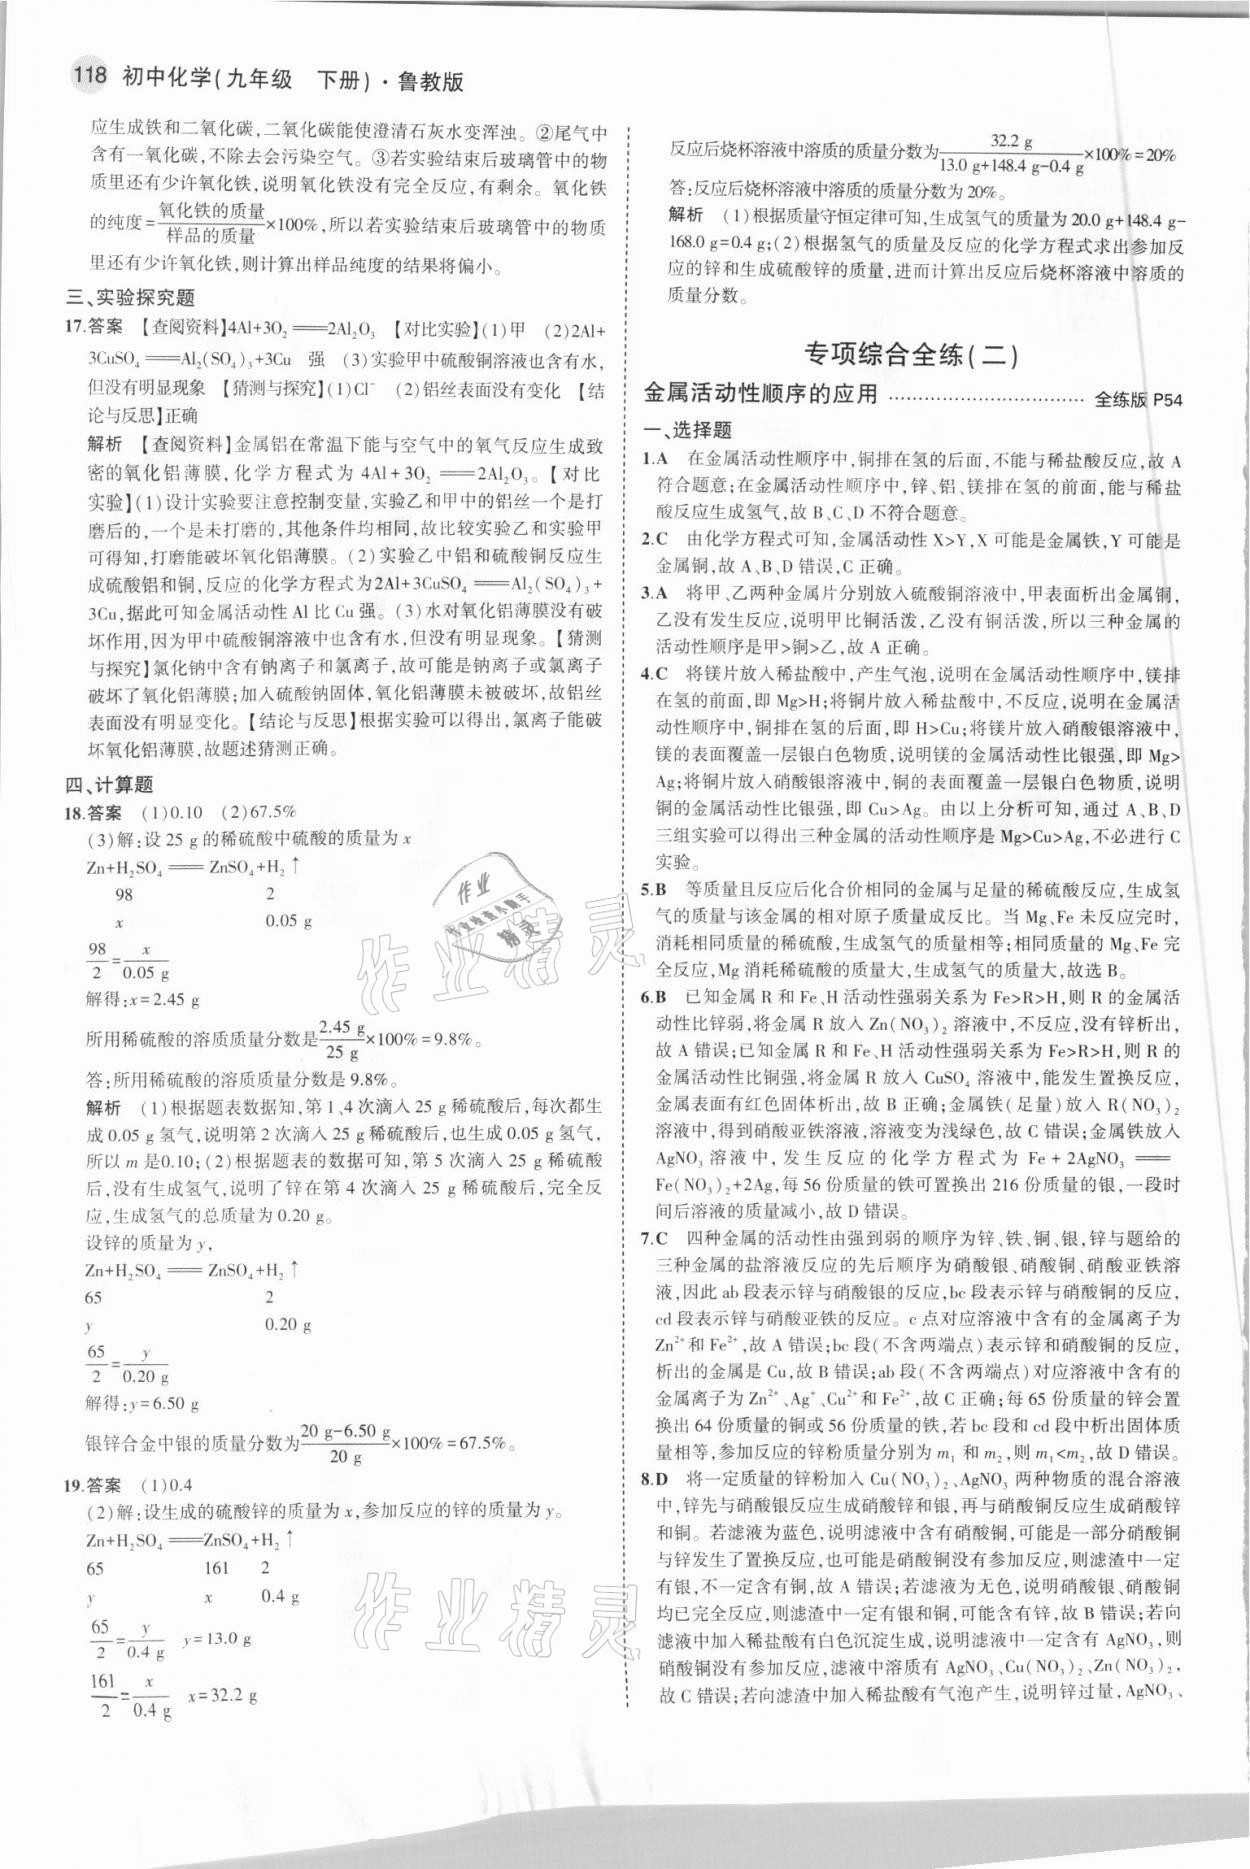 118 初中化学(九年级 下册)·鲁教版
应生成铁和二氧化碳,二氧化碳能使澄清石灰水变浑浊。②尾气中
含有一氧化碳,不除去会污染空气。③若实验结束后玻璃管中的物
质里还有少许氧化铁,说明氧化铁没有完全反应,有剩余。氧化铁
的纯度=氧化铁的质量/样品的质量×100%,所以若实验结束后玻璃管中的物质
里还有少许氧化铁,则计算出样品纯度的结果将偏小。
三、实验探究题
17.答案 【查阅资料】4Al+3O₂══2Al₂O₃ 【对比实验】(1)甲 (2)2Al+
3CuSO₄══Al₂(SO₄)₃+3Cu 强 (3)实验甲中硫酸铜溶液也含有水,
但没有明显现象 【猜测与探究】(1)Cl⁻ (2)铝丝表面没有变化 【结
论与反思】正确
解析 【查阅资料】金属铝在常温下能与空气中的氧气反应生成致
密的氧化铝薄膜,化学方程式为 4Al+3O₂══2Al₂O₃。【对比
实验】(1)设计实验要注意控制变量,实验乙和甲中的铝丝一个是打
磨后的,一个是未打磨的,其他条件均相同,故比较实验乙和实验甲
可得知,打磨能破坏氧化铝薄膜。(2)实验乙中铝和硫酸铜反应生
成硫酸铝和铜,反应的化学方程式为2Al+3CuSO₄══Al₂(SO₄)₃+
3Cu,据此可知金属活动性 Al 比 Cu 强。(3)水对氧化铝薄膜没有破
坏作用,因为甲中硫酸铜溶液中也含有水,但没有明显现象。【猜测
与探究】氯化钠中含有钠离子和氯离子,故可能是钠离子或氯离子
破坏了氧化铝薄膜;加入硫酸钠固体,氧化铝薄膜未被破坏,故铝丝
表面没有明显变化。【结论与反思】根据实验可以得出,氯离子能破
坏氧化铝薄膜,故题述猜测正确。
四、计算题
18.答案 (1)0.10 (2)67.5%
(3)解:设 25 g 的稀硫酸中硫酸的质量为 x
Zn+H₂SO₄══ZnSO₄+H₂↑
98 2
x 0.05 g
98/2=x/0.05 g
解得:x=2.45 g
所用稀硫酸的溶质质量分数是2.45 g/25 g×100%=9.8%。
答:所用稀硫酸的溶质质量分数是 9.8%。
解析 (1)根据题表数据知,第 1、4 次滴入 25 g 稀硫酸后,每次都生
成 0.05 g 氢气,说明第 2 次滴入 25 g 稀硫酸后,也生成 0.05 g 氢气,
所以 m 是0.10;(2)根据题表的数据可知,第 5 次滴入 25 g 稀硫酸
后,没有生成氢气,说明了锌在第 4 次滴入 25 g 稀硫酸后,完全反
应,生成氢气的总质量为 0.20 g。
设锌的质量为 y,
Zn+H₂SO₄══ZnSO₄+H₂↑
65 2
y 0.20 g
65/2=y/0.20 g
解得:y=6.50 g
银锌合金中银的质量分数为20 g-6.50 g/20 g×100%=67.5%。
19.答案 (1)0.4
(2)解:设生成的硫酸锌的质量为 x,参加反应的锌的质量为 y。
Zn+H₂SO₄══ZnSO₄+H₂↑
65 161 2
y x 0.4 g
65/2=y/0.4 g y=13.0 g
161/2=x/0.4 g x=32.2 g
反应后烧杯溶液中溶质的质量分数为32.2 g/13.0 g+148.4 g-0.4 g×100%=20%
答:反应后烧杯溶液中溶质的质量分数为 20%。
解析 (1)根据质量守恒定律可知,生成氢气的质量为 20.0 g+148.4 g-
168.0 g=0.4 g;(2)根据氢气的质量及反应的化学方程式求出参加反
应的锌和生成硫酸锌的质量,进而计算出反应后烧杯溶液中溶质的
质量分数。
专项综合全练(二)
金属活动性顺序的应用 ……………………………… 全练版 P54
一、选择题
1.A 在金属活动性顺序中,铜排在氢的后面,不能与稀盐酸反应,故 A
符合题意;在金属活动性顺序中,锌、铝、镁排在氢的前面,能与稀盐
酸反应生成氢气,故 B、C、D 不符合题意。
2.C 由化学方程式可知,金属活动性 X>Y,X 可能是金属铁,Y 可能是
金属铜,故 A、B、D 错误,C 正确。
3.A 将甲、乙两种金属片分别放入硫酸铜溶液中,甲表面析出金属铜,
乙没有发生反应,说明甲比铜活泼,乙没有铜活泼,所以三种金属的
活动性顺序是甲>铜>乙,故 A 正确。
4.C 将镁片放入稀盐酸中,产生气泡,说明在金属活动性顺序中,镁排
在氢的前面,即 Mg>H;将铜片放入稀盐酸中,不反应,说明在金属活
动性顺序中,铜排在氢的后面,即 H>Cu;将镁片放入硝酸银溶液中,
镁的表面覆盖一层银白色物质,说明镁的金属活动性比银强,即 Mg>
Ag;将铜片放入硝酸银溶液中,铜的表面覆盖一层银白色物质,说明
铜的金属活动性比银强,即 Cu>Ag。由以上分析可知,通过 A、B、D
三组实验可以得出三种金属的活动性顺序是 Mg>Cu>Ag,不必进行 C
实验。
5.B 等质量且反应后化合价相同的金属与足量的稀硫酸反应,生成氢
气的质量与该金属的相对原子质量成反比。当 Mg、Fe 未反应完时,
消耗相同质量的稀硫酸,生成氢气的质量相等;相同质量的 Mg、Fe 完
全反应,Mg 消耗稀硫酸的质量大,生成氢气的质量大,故选 B。
6.B 已知金属 R 和 Fe、H 活动性强弱关系为 Fe>R>H,则 R 的金属活
动性比锌弱,将金属 R 放入 Zn(NO₃)₂ 溶液中,不反应,没有锌析出,
故 A 错误;已知金属 R 和 Fe、H 活动性强弱关系为 Fe>R>H,则 R 的
金属活动性比铜强,将金属 R 放入 CuSO₄ 溶液中,能发生置换反应,
金属表面有红色固体析出,故 B 正确;金属铁(足量)放入 R(NO₃)₂
溶液中,得到硝酸亚铁溶液,溶液变为浅绿色,故 C 错误;金属铁放入
AgNO₃ 溶液中,发生反应的化学方程式为 Fe+2AgNO₃══
Fe(NO₃)₂+2Ag,每 56 份质量的铁可置换出 216 份质量的银,一段时
间后溶液的质量减小,故 D 错误。
7.C 四种金属的活动性由强到弱的顺序为锌、铁、铜、银,锌与题给的
三种金属的盐溶液反应的先后顺序为硝酸银、硝酸铜、硝酸亚铁溶
液,因此 ab 段表示锌与硝酸银的反应,bc 段表示锌与硝酸铜的反应,
cd 段表示锌与硝酸亚铁的反应。c 点对应溶液中含有的金属离子为
Zn²⁺和 Fe²⁺,故 A 错误;bc 段(不含两端点)表示锌和硝酸铜的反应,
析出的金属是 Cu,故 B 错误;ab 段(不含两端点)对应溶液中含有的
金属离子为 Zn²⁺、Ag⁺、Cu²⁺和 Fe²⁺,故 C 正确;每 65 份质量的锌会置
换出 64 份质量的铜或 56 份质量的铁,若 bc 段和 cd 段中析出固体质
量相等,参加反应的锌粉质量分别为 m₁ 和 m₂,则 m₁<m₂,故 D 错误。
8.D 将一定质量的锌粉加入 Cu(NO₃)₂、AgNO₃ 两种物质的混合溶液
中,锌先与硝酸银反应生成硝酸锌和银,再与硝酸铜反应生成硝酸锌
和铜。若滤液为蓝色,说明滤液中含有硝酸铜,可能是一部分硝酸铜
与锌发生了置换反应,也可能是硝酸铜没有参加反应,则滤渣中一定
有银,不一定含有铜,故 A 错误;若滤液为无色,说明硝酸银、硝酸铜
均已完全反应,则滤渣中一定有银和铜,可能含有锌,故 B 错误;若向
滤液中加入稀盐酸有白色沉淀生成,说明滤液中一定含有 AgNO₃,则
硝酸铜没有参加反应,滤液中溶质有 AgNO₃、Cu(NO₃)₂、Zn(NO₃)₂,
故 C 错误;若向滤渣中加入稀盐酸有气泡产生,说明锌过量,AgNO₃、
作业
作业检查小助手
精灵
作业精灵
作业精灵